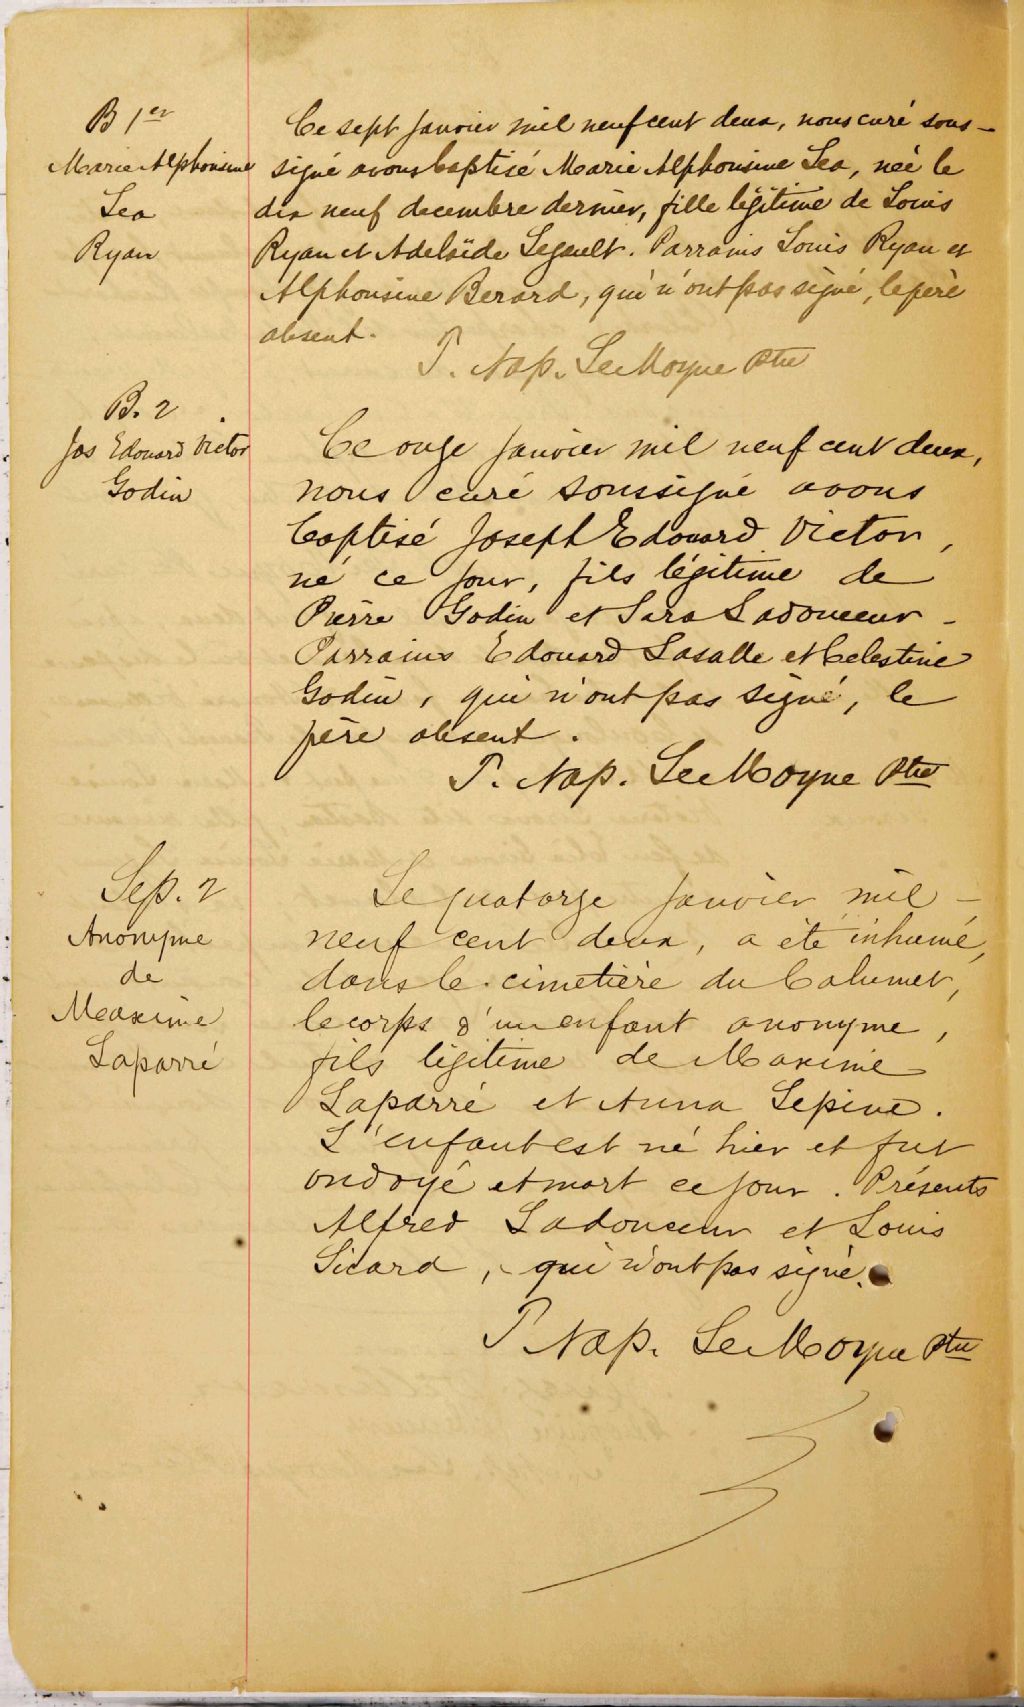 B 1er
Marie Alphonsine
Lea
Ryan
Ce sept Janvier mil neuf cent deux, nous curé sous-
signé avons baptisé Marie Alphonsine Lea, née le
dix neuf decembre dernier, fille légitime de Louis
Ryan et Adelaïde Legault. Parrains Louis Ryan et
Alphonsine Berard, qui n'ont pas signé, le père
absent.
P. Nap. LeMoyne Ptre
B. 2
Jos Edouard Victor
Godin
Ce onze Janvier mil neuf cent deux,
nous curé soussigné avons
baptisé Joseph Edouard Victor,
né ce jour, fils légitime de
Pierre Godin et Sara Ladouceur -
Parrains Edouard Lasalle et Celestine
Godin, qui n'ont pas signé, le
père absent.
P. Nap. LeMoyne Ptre
Sep. 2
Anonyme
de
Maxime
Laparré
Le quatorze Janvier mil -
neuf cent deux, a été inhumé,
dans le cimetière du Calumet,
le corps d'un enfant anonyme,
fils légitime de Maxime
Laparré et Anna Lepine.
L'enfant est né hier et fut
ondoyé et mort ce jour. Présents
Alfred Ladouceur et Louis
Sicard, qui n'ont pas signé.
P Nap. LeMoyne Ptre